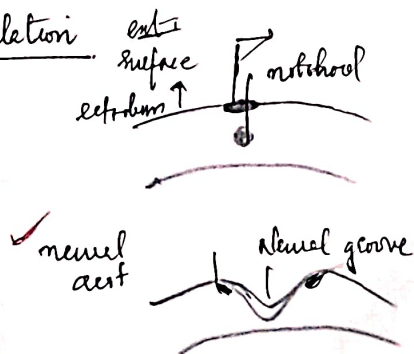 exti
surface
ectoderm
notochord
neural
crest
Neural groove